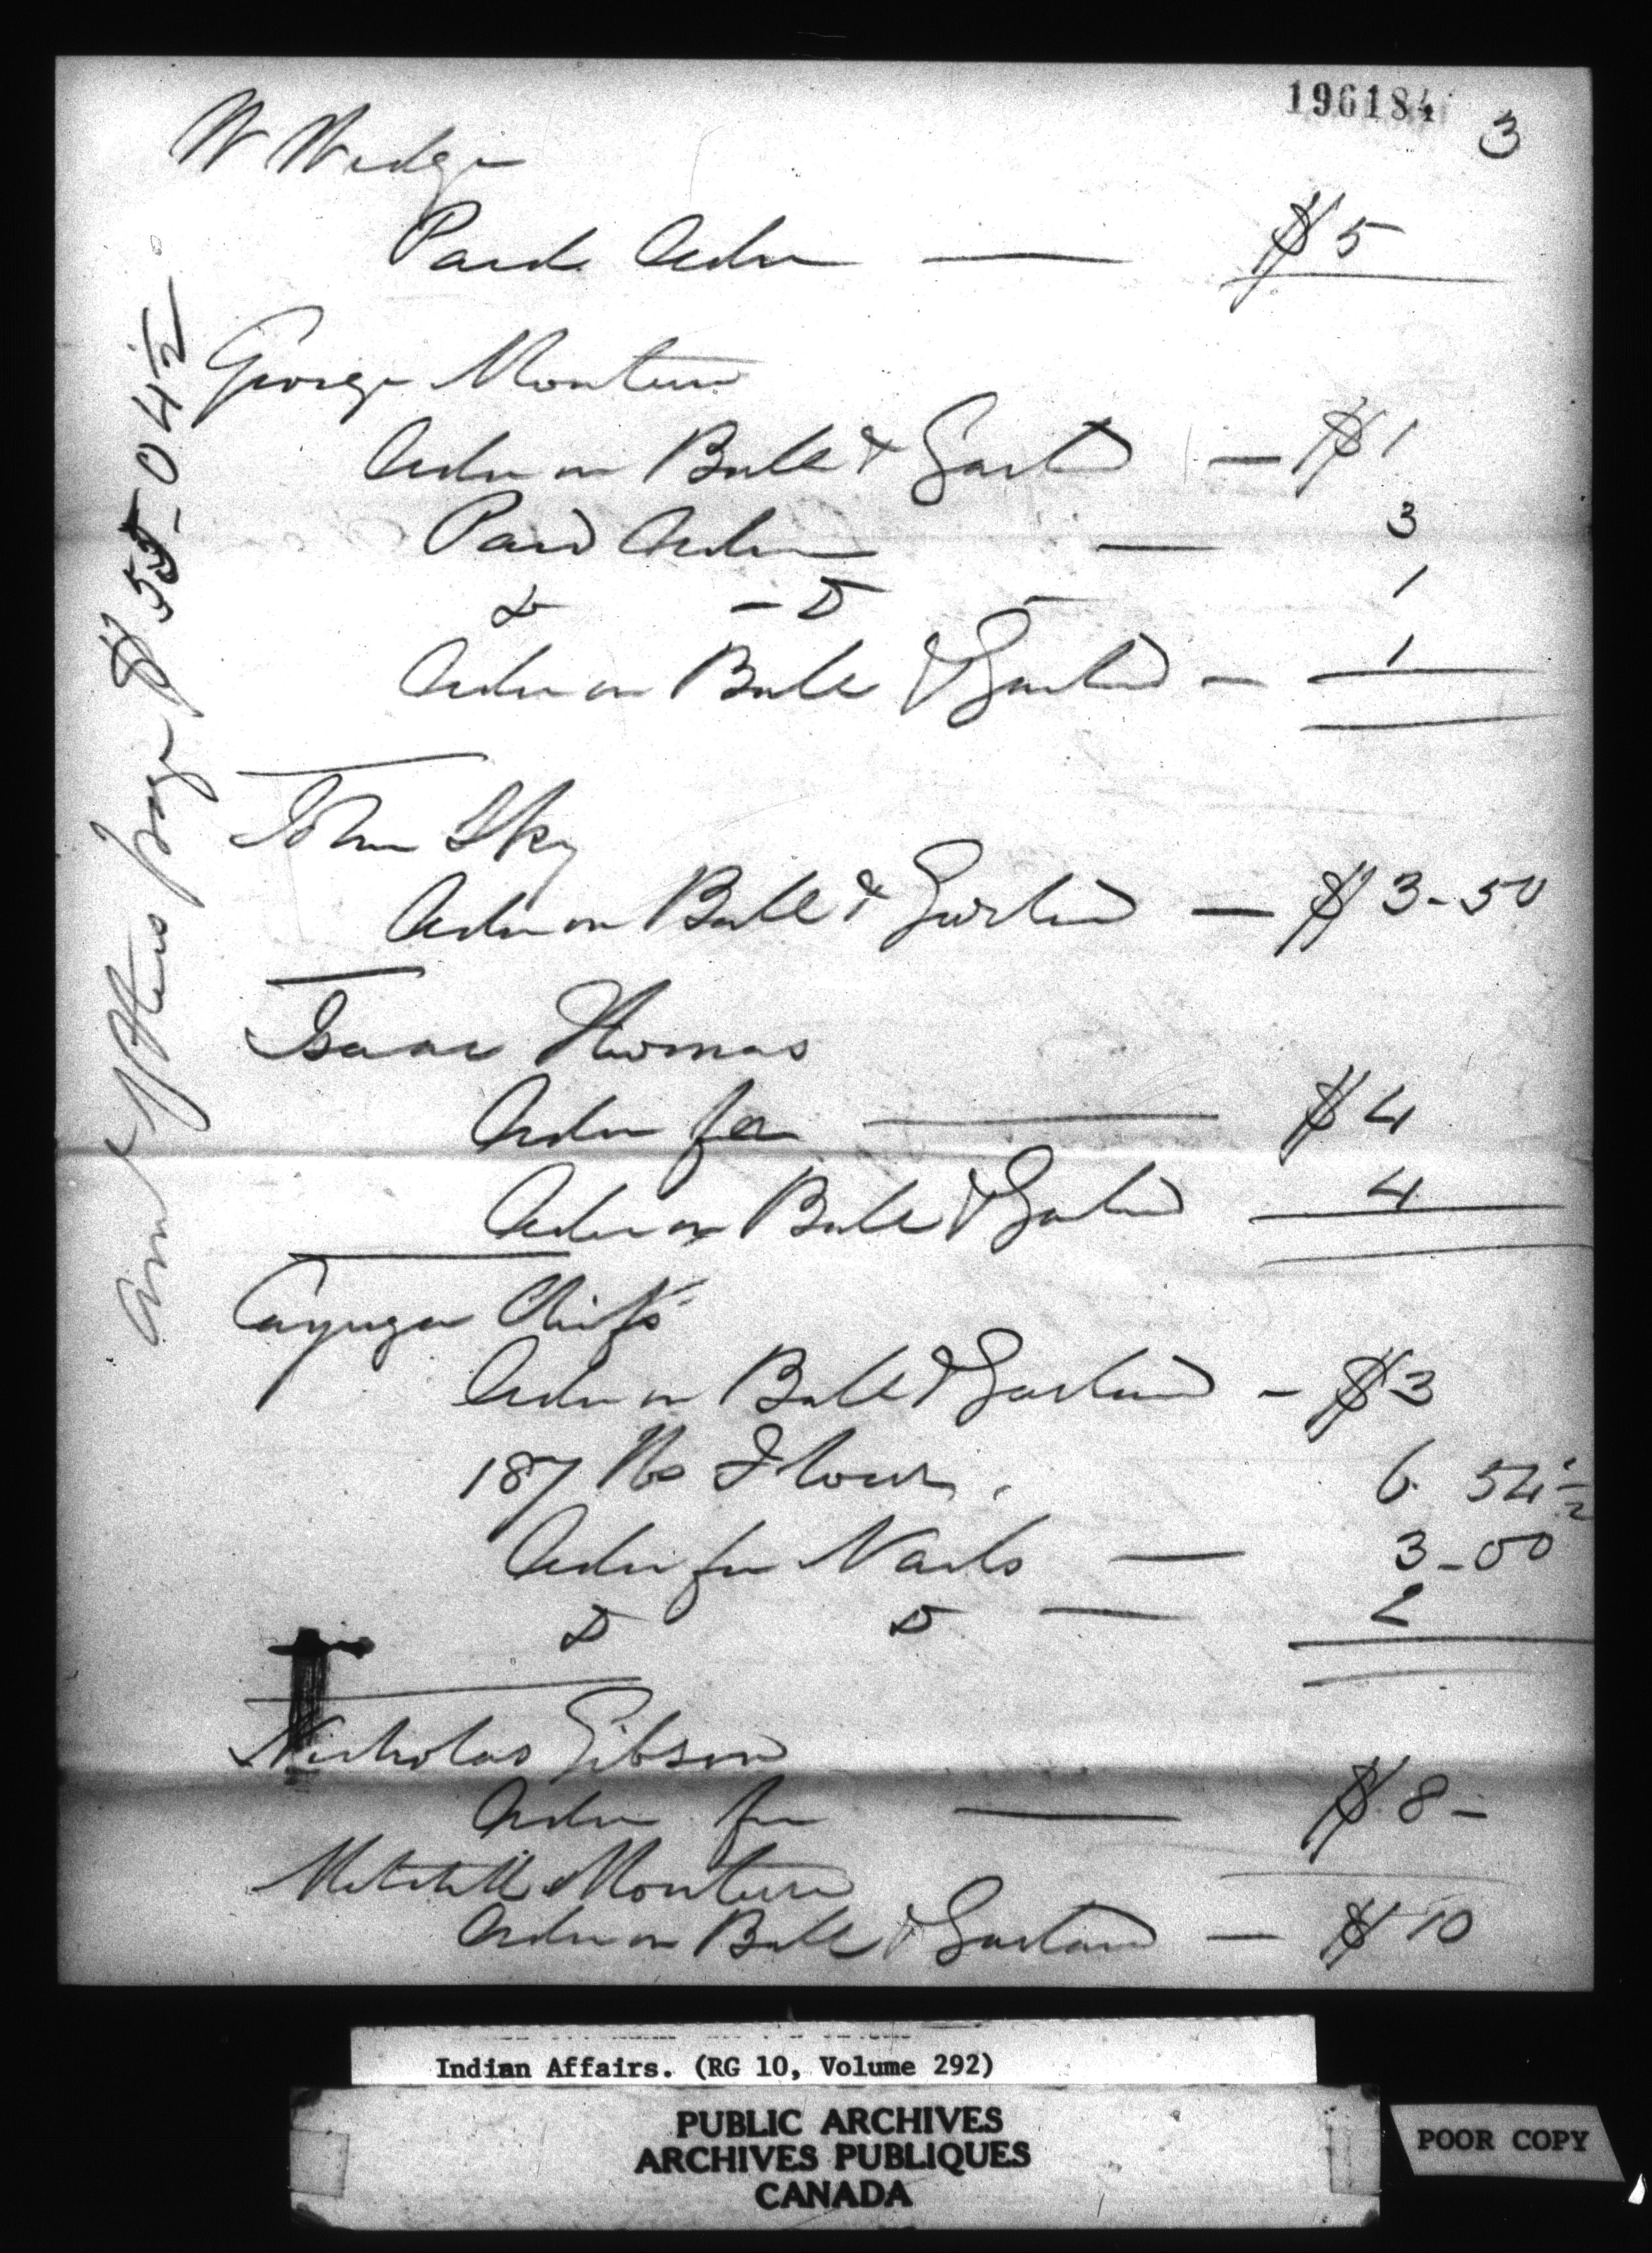 196184
3
W Wedge
Paid Order — $5
George Monture
Order on Bull & Garland — $1
Paid Order — 3
D — D — 1
Order on Bull & Garland — 1
John Sky
Order on Bull & Garland — $3-50
Isaac Thomas
Order for — $4
Order on Bull & Garland 4
Cayuga Chiefs
Order on Bull & Garland - $3
187 lbs Flour. 6. 54½
Order for Nails — 3-00
D D — 2
Nicholas Gibson
Order for — $8-
Mitchell Monture
Order on Bull & Garland — $10
Amt of this page $55-04½
Indian Affairs. (RG 10, Volume 292)
PUBLIC ARCHIVES
ARCHIVES PUBLIQUES
CANADA
POOR COPY